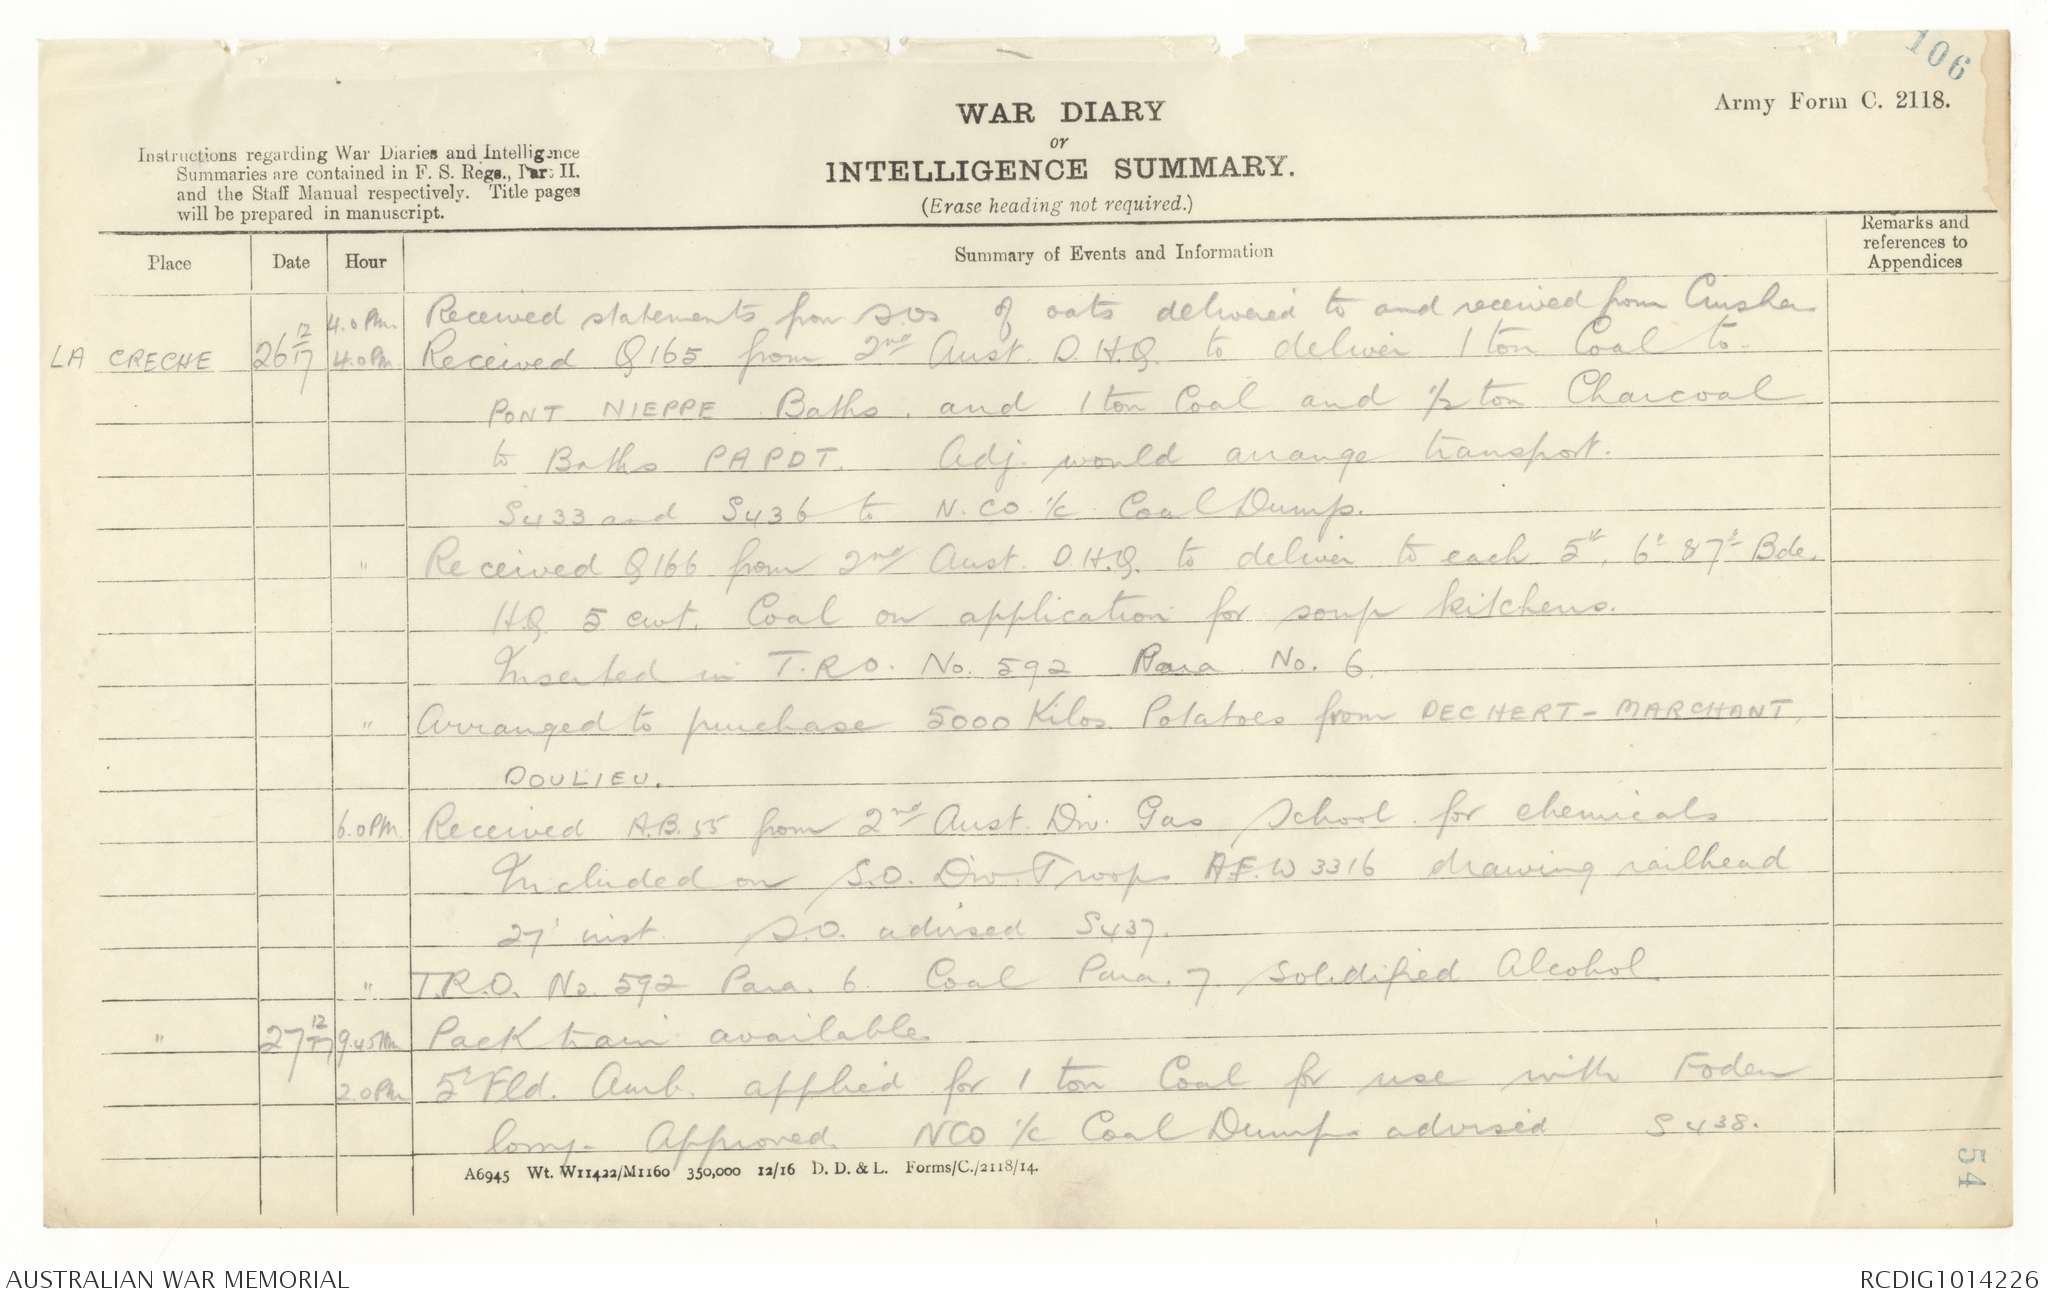 106
Army Form C. 2118.
WAR DIARY
or
INTELLIGENCE SUMMARY.
(Erase heading not required.)
Instructions regarding War Diaries and Intelligence
Summaries are contained in F. S. Regs., Part II.
and the Staff Manual respectively. Title pages
will be prepared in manuscript.
Place Date Hour Summary of Events and Information Remarks and references to Appendices
4.0 PM. Received statements from S.Os of oats delivered to and received from Crusher
LA CRECHE 26 12/17 4.0PM. Received Q165 from 2nd Aust. D.H.Q. to deliver 1 ton Coal to
PONT NIEPPE Baths, and 1 ton Coal and 1/2 ton Charcoal
to Baths PAPOT. Adj. would arrange transport.
S433 and S436 to N.CO i/c Coal Dump.
" Received Q166 from 2nd Aust. D.H.Q. to deliver to each 5th, 6th & 7th Bde.
HQ 5 cwt. Coal on application for soup kitchens.
Inserted in T.R.O. No. 592 Para No. 6
" Arranged to purchase 5000 Kilos Potatoes from DECHERT-MARCHANT,
DOULIEU.
6.0PM. Received A.B. 55 from 2nd Aust. Div. Gas School for chemicals
Included on S.O. Div. Troops A.F.W 3316 drawing railhead
27' inst. S.O. advised S437.
" T.R.O. No. 592 Para. 6 Coal Para. 7 Solidified Alcohol.
" 27 12/17 9.45 Pack train available.
2.0PM 5' Fld. Amb. applied for 1 ton Coal for use with Foden
lorry. Approved. NCO i/c Coal Dump advised S438.
A6945 Wt. W11422/M1160 350,000 12/16 D. D. & L. Forms/C./2118/14.
54
AUSTRALIAN WAR MEMORIAL
RCDIG1014226